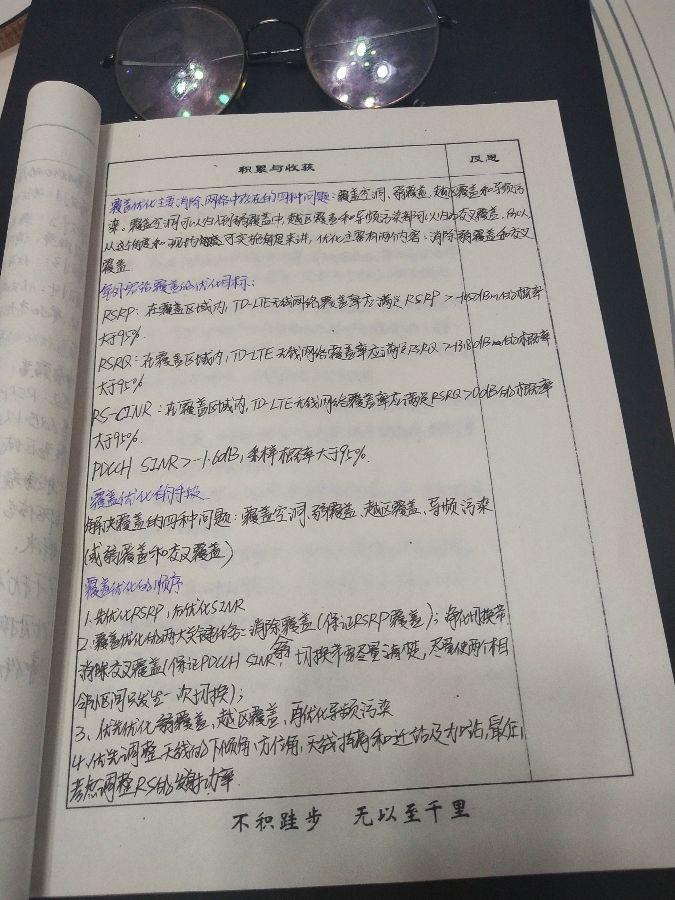 积累与收获
反思
覆盖优化主要消除网络中存在的四种问题：覆盖空洞、弱覆盖、越区覆盖和导频污
染。覆盖空洞可以归入到弱覆盖中，越区覆盖和导频污染都可以归为交叉覆盖，所以
从这个角度和现场可实施角度来讲，优化主要有两个内容：消除弱覆盖和交叉
覆盖
室外网络覆盖的优化目标：
RSRP：在覆盖区域内，TD-LTE无线网络覆盖率应满足RSRP > 的概率
大于95%
RSRQ：在覆盖区域内，TD-LTE无线网络覆盖率应满足RSRQ >-13.8dB的概率
大于95%
RS-CINR：在覆盖区域内，TD-LTE无线网络覆盖率应满足RSRQ>0dB的概率
大于95%.
PDCCH SINR>-1.6dB，采样概率大于95%.
覆盖优化的手段
解决覆盖的四种问题：覆盖空洞、弱覆盖、越区覆盖、导频污染
(或弱覆盖和交叉覆盖)
覆盖优化的顺序
1.先优化RSRP，后优化SINR
2.覆盖优化的两大关键任务：消除覆盖(保证RSRP覆盖)；净化切换带
消除交叉覆盖(保证PDCCH SINR，切换带要尽量清楚，尽量使两个相
邻小区间只发生一次切换)；
3、优先优化弱覆盖、越区覆盖，再优化导频污染
4.优先调整天线的下倾角、方位角、天线挂高和迁站及加站，最后
考虑调整RS的发射功率.
不积跬步 无以至千里